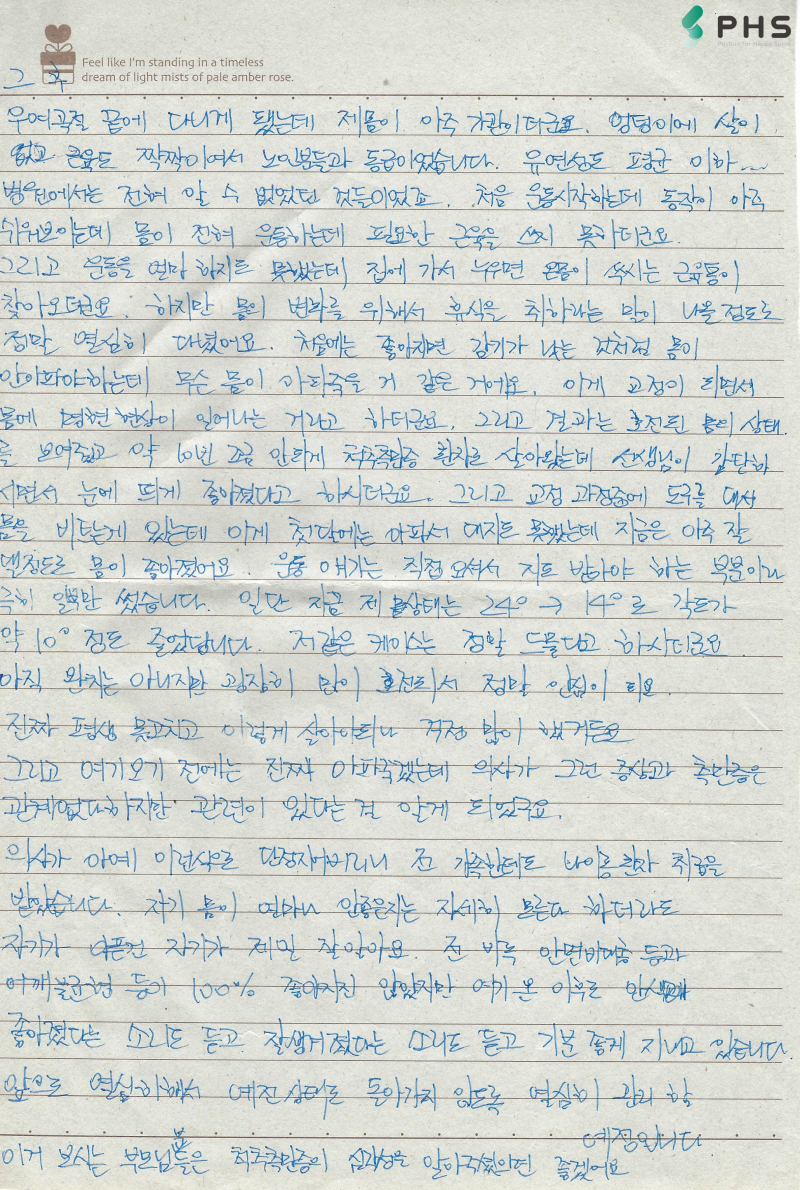 PHS
Feel like I'm standing in a timeless
dream of light mists of pale amber rose.
그 후
우여곡절 끝에 다니게 됐는데 제몸이 아주 가관이더군요. 엉덩이에 살이
없고 근육도 짝짝이여서 노인분들과 동급이었습니다. 유연성도 평균 이하...
병원에서는 전혀 알 수 없었던 것들이였죠. 처음 운동시작하는데 동작이 아주
쉬워보이는데 몸이 전혀 운동하는데 필요한 근육을 쓰지 못하더군요.
그리고 운동을 얼마 하지도 못했는데 집에 가서 누우면 온몸이 쑤시는 근육통이
찾아오더군요. 하지만 몸이 변화를 위해서 휴식을 취하라는 말이 나올정도로
정말 열심히 다녔어요. 처음에는 좋아지면 감기가 낫는 것처럼 몸이
안아파야하는데 무슨 몸이 아파죽을 거 같은 거에요. 이게 교정이 되면서
몸에 명현현상이 일어나는 거라고 하더군요. 그리고 결과는 호전된 몸의 상태
를 보여줬고 약 10년 조금 안되게 척추측만증 환자로 살아왔는데 선생님이 감탄하
시면서 눈에 띄게 좋아졌다고 하시더군요. 그리고 교정 과정중에 도구를 대서
몸을 비트는게 있는데 이게 첫달에는 아파서 대지도 못했는데 지금은 아주 잘
댈정도로 몸이 좋아졌어요. 운동 얘기는 직접 오셔서 지도 받아야 하는 부분이라
극히 일부만 썼습니다. 일단 지금 제 상태는 24° → 14°로 각도가
약 10° 정도 줄었답니다. 저같은 케이스는 정말 드물다고 하시더군요
아직 완치는 아니지만 굉장히 많이 호전되서 정말 안심이 되요.
진짜 평생 못고치고 이렇게 살아야되나 걱정 많이 했거든요
그리고 여기오기 전에는 진짜 아파죽겠는데 의사가 그런 증상과 측만증은
관계없다하지만 관련이 있다는 걸 알게 되었구요.
의사가 아예 이런식으로 단정지어버리니 전 가족한테도 나이롱환자 취급을
받았습니다. 자기 몸이 얼마나 안좋은지는 자세히 모른다 하더라도
자기가 아픈건 자기가 제일 잘알아요. 전 비록 안면비대칭 등과
어깨불균형 등이 100% 좋아지진 않았지만 여기 온 이후로 인상이
좋아졌다는 소리도 듣고 잘생겨졌다는 소리도 듣고 기분 좋게 지내고 있습니다.
앞으로 열심히해서 예전상태로 돌아가지 않도록 열심히 관리 할
예정입니다
이거 보시는 부모님분들은 척추측만증의 심각성을 알아주셨으면 좋겠어요